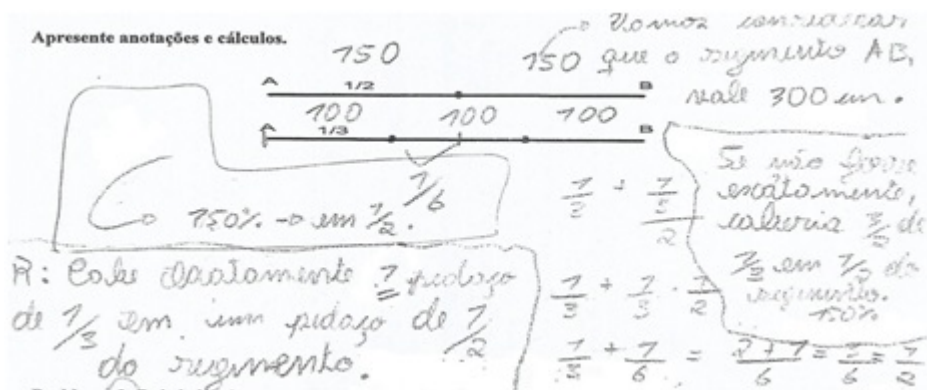 Apresente anotações e cálculos.
150 150 → Vamos considerar
que o segmento AB,
vale 300 cm.
A 1/2 B
100 100 100
A 1/3 B
1/6
150% → em 1/2.
R: Cabe exatamente 1 pedaço
de 1/3 em um pedaço de 1/2
do segmento.
1/3 + 1/3 · 1/2
1/3 + 1/6 = 2+1/6 = 3/6 = 1/2
Se não fosse
exatamente,
caberia 3/2 de
1/3 em 1/2 do
segmento.
150%